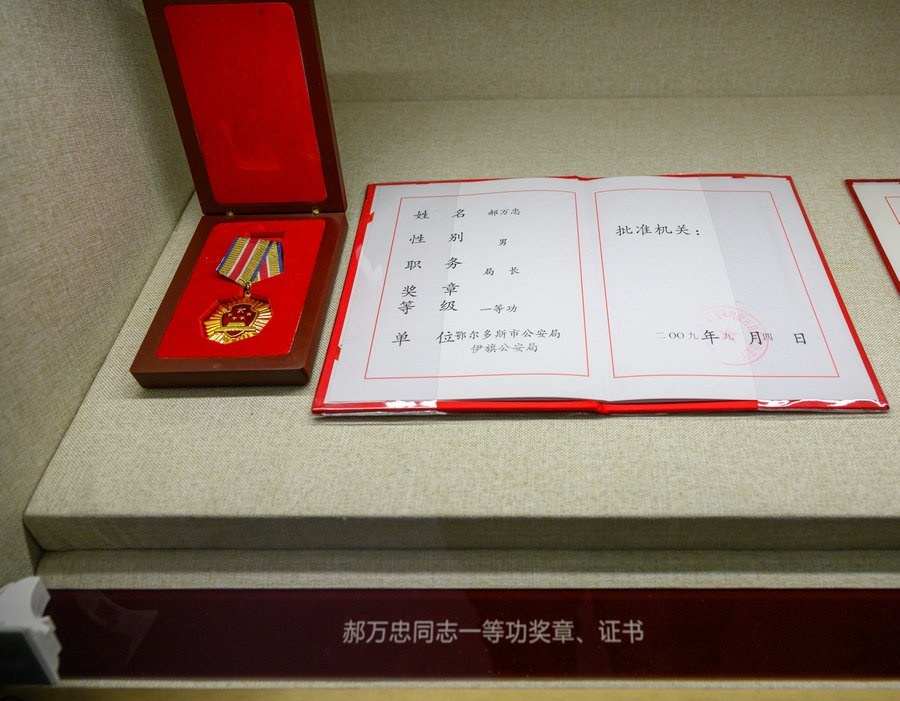 姓 名 郝万忠
性 别 男
职 务 局 长
奖 章
等 级 一等功
单 位 鄂尔多斯市公安局
伊旗公安局
批准机关：
二〇〇九年九月四日
郝万忠同志一等功奖章、证书